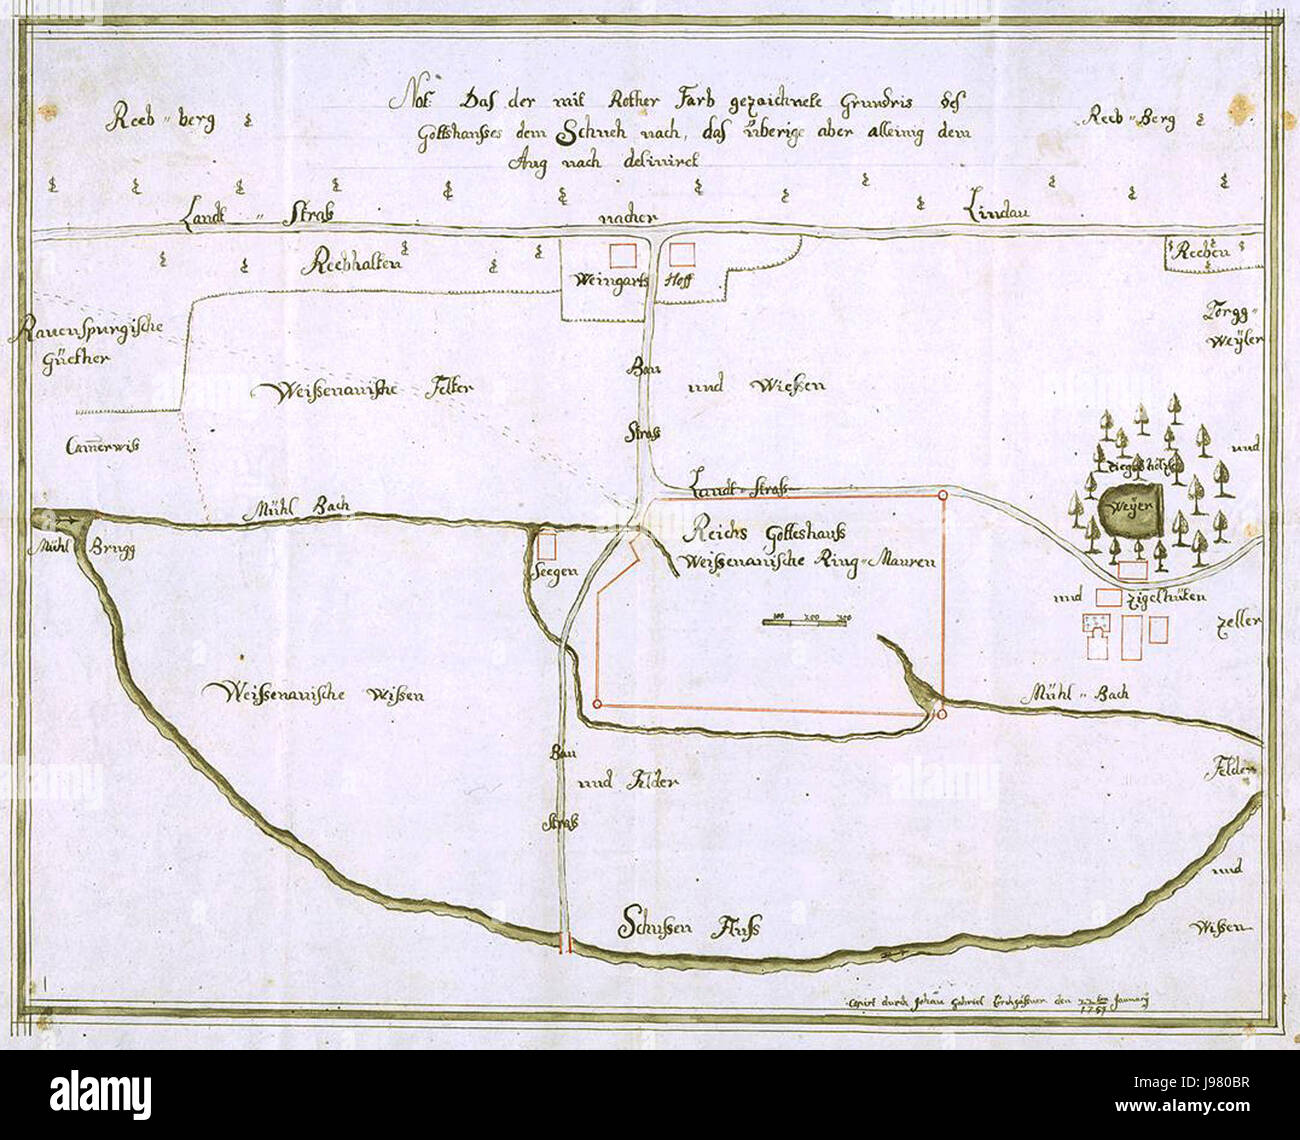 Not: Das der mit Rother Farb gezaichnete Grundris des
Gottshausses dem Schueh nach, das überige aber alleinig dem
Aug nach deliniret
Reeb-berg
Reeb-Berg
Landt-Straß nacher Lindau
Reebhalten
Weingarts Hoff
Reeben
Rauenspurgische
Güether
Torgg-
Weyler
Bau
Straß
Weissenauische Felter
und Wiessen
Camerwiss
und
Ziegelholz
Weyer
Landt-Straß
Mühl Bach
Mühl Brugg
Reichs Gotteshauss
Weissenauische Ring-Mauren
Seegen
100 200 250
und Zigelhüten
Zeller
Weissenauische Wissen
Mühl-Bach
Bau
Straß
und Felder
Felder
und
Wissen
Schussen Fluss
Copirt durch Johan Gabriel den 22ten January
alamy
a
Image ID: J980BR
www.alamy.com